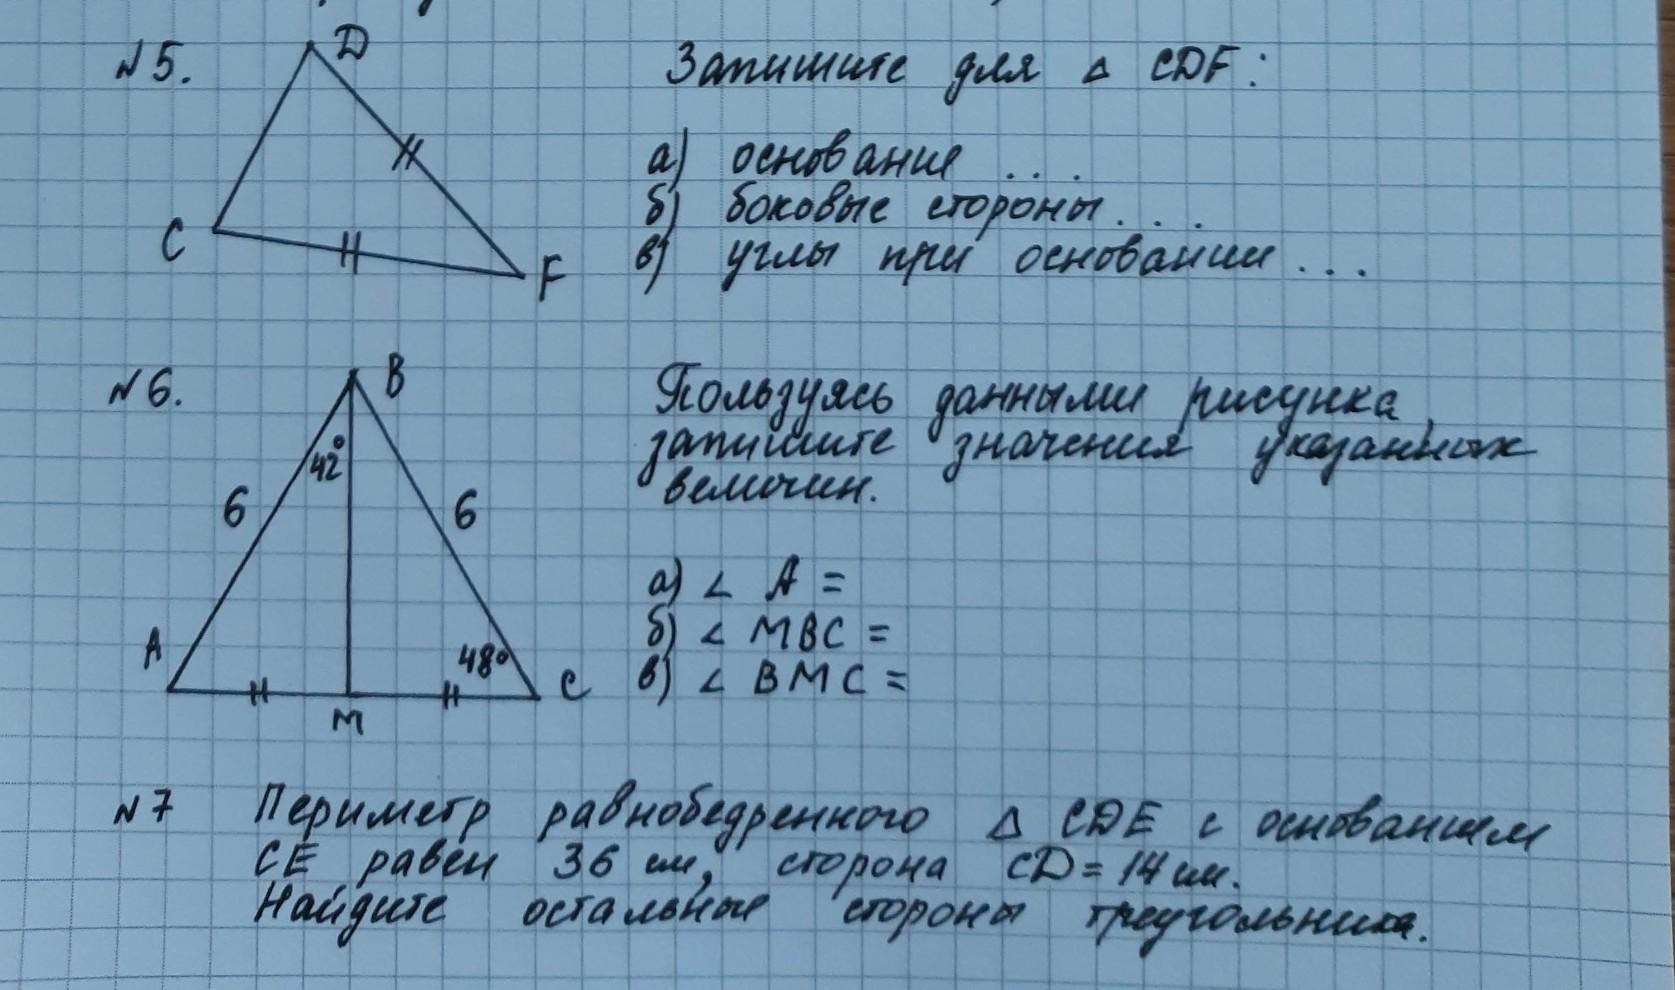 №5.
D
C
F
Запишите для △ CDF:
а) основание ...
б) боковые стороны...
в) углы при основании ...
№6.
B
42°
6
6
A
48°
C
M
Пользуясь данными рисунка,
запишите значения указанных
величин.
а) ∠ A =
б) ∠ MBC =
в) ∠ BMC =
№7 Периметр равнобедренного △ CDE с основанием
CE равен 36 см, сторона CD = 14 см.
Найдите остальные стороны треугольника.